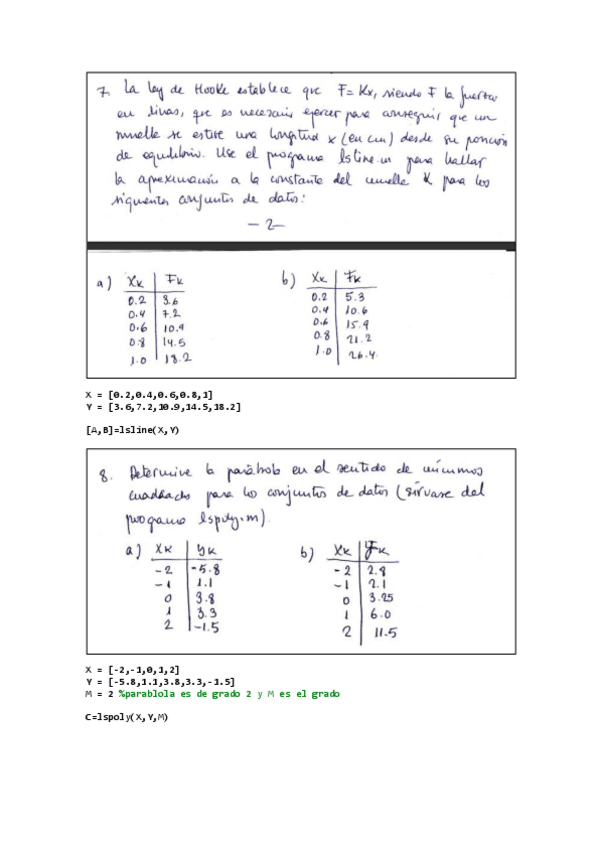 7. La ley de Hooke establece que F=Kx, siendo F la fuerza
en libras, que es necesario ejercer para conseguir que un
muelle se estire una longitud x (en cm) desde su posición
de equilibrio. Use el programa lsline.m para hallar
la aproximación a la constante del muelle K para los
siguientes conjuntos de datos:
-2-
a) Xk Fk
0.2 3.6
0.4 7.2
0.6 10.9
0.8 14.5
1.0 18.2
b) Xk Fk
0.2 5.3
0.4 10.6
0.6 15.9
0.8 21.2
1.0 26.4
X = [0.2,0.4,0.6,0.8,1]
Y = [3.6,7.2,10.9,14.5,18.2]
[A,B]=lsline(X,Y)
8. Determine la parábola en el sentido de mínimos
cuadrados para los conjuntos de datos (sírvase del
programa lspoly.m).
a) Xk yk
-2 -5.8
-1 1.1
0 3.8
1 3.3
2 -1.5
b) Xk Yk
-2 2.8
-1 2.1
0 3.25
1 6.0
2 11.5
X = [-2,-1,0,1,2]
Y = [-5.8,1.1,3.8,3.3,-1.5]
M = 2 %parablola es de grado 2 y M es el grado
C=lspoly(X,Y,M)